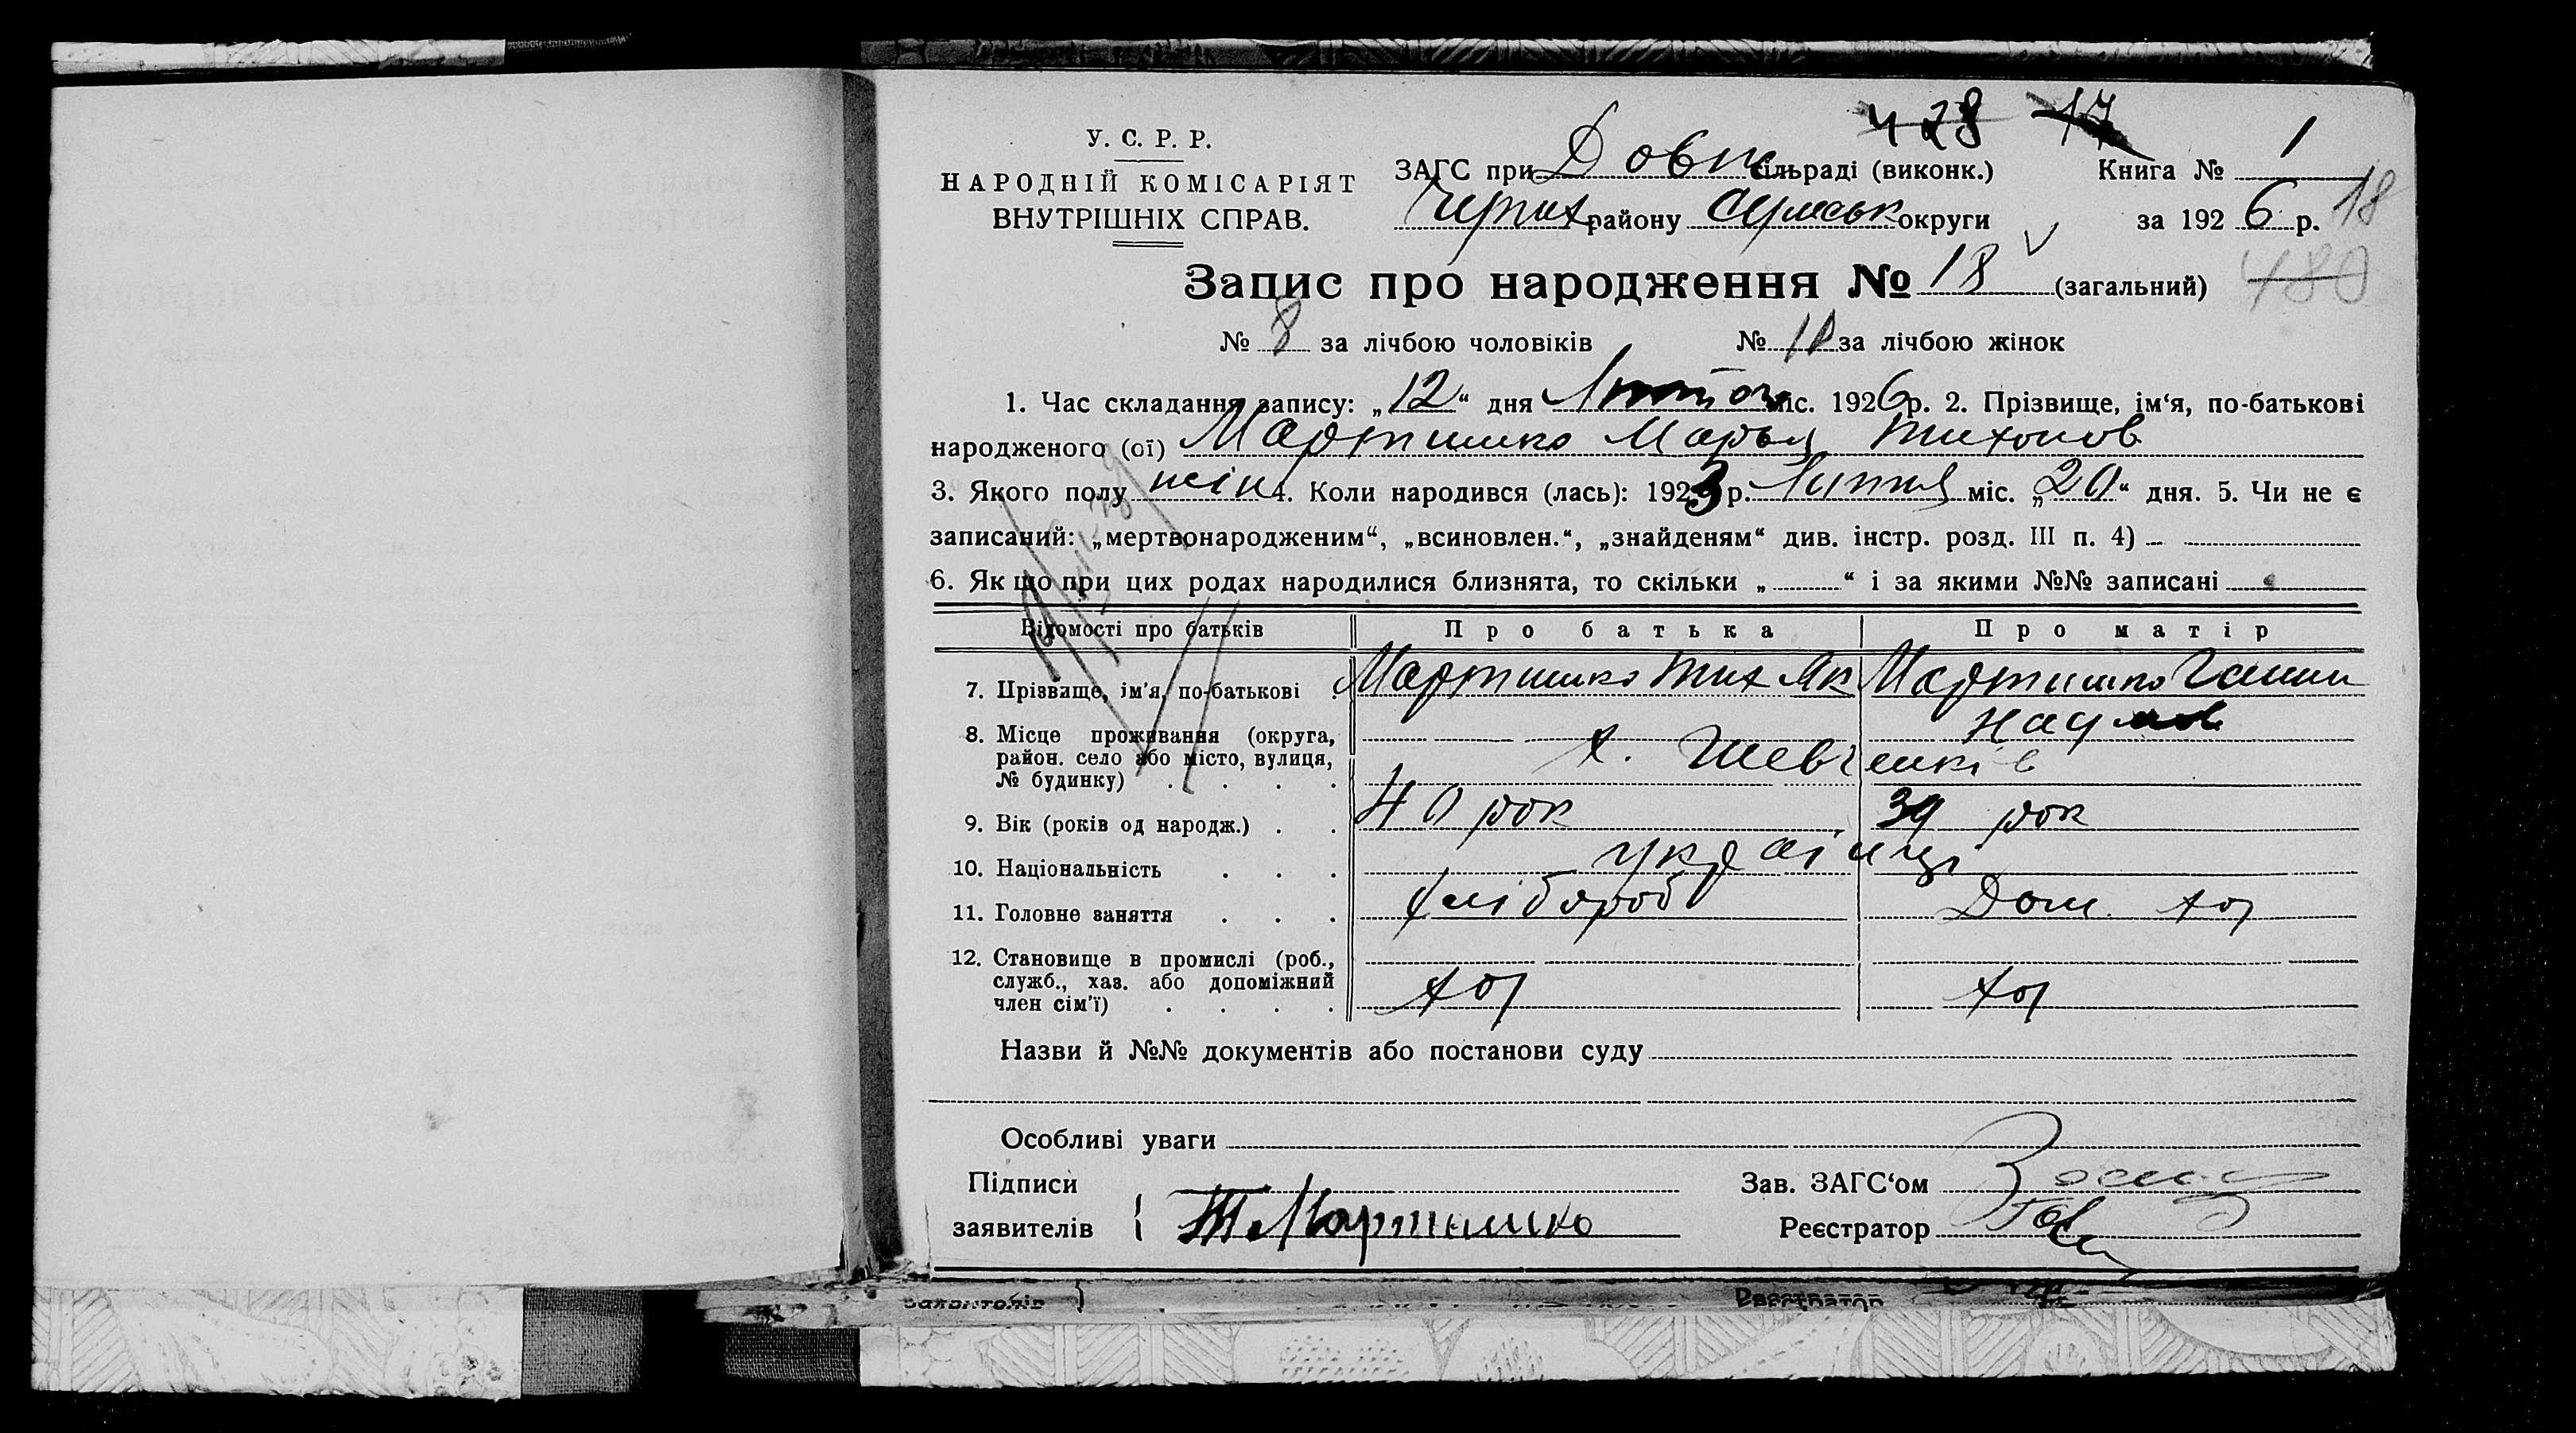 428 17
У. С. Р. Р.
НАРОДНІЙ КОМІСАРІЯТ
ВНУТРІШНІХ СПРАВ.
ЗАГС при Довж сільраді (виконк.) Книга № 1
району Сумськ округи за 1926 р. 18
Запис про народження № 18 (загальний) 480
№ 8 за лічбою чоловіків № 10 за лічбою жінок
1. Час складання запису: „12“ дня Лютого міс. 1926 р. 2. Прізвище, ім‘я, по-батькові
народженого (ої) Мартишко Марья Тихонов
3. Якого полу жін 4. Коли народився (лась): 1923 р. Липня міс. „20“ дня. 5. Чи не є
записаний: „мертвонародженим“, „всиновлен.“, „знайденям“ див. інстр. розд. III п. 4)
6. Як що при цих родах народилися близнята, то скільки „ “ і за якими №№ записані
Відомості про батьків Про батька Про матір
7. Прізвище, ім'я, по-батькові Мартишко Тих Як Мартишко Ганни
Наумов
8. Місце проживання (округа,
район. село або місто, вулиця,
№ будинку)
х. Шевченків
9. Вік (років од народж.) 40 рок 39 рок
10. Національність українці
11. Головне заняття хлібороб Дом. хоз
12. Становище в промислі (роб.,
служб., хаз. або допоміжний
член сім'ї) хоз хоз
Назви й №№ документів або постанови суду
Особливі уваги
Підписи Зав. ЗАГС‘ом
заявителів Т Мартишко Реєстратор
заявителів Реєстратор